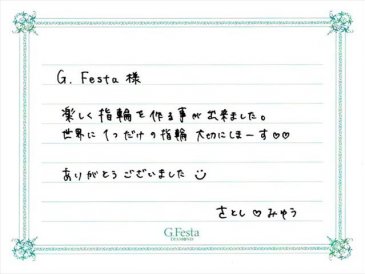 G. Festa 様
楽しく指輪を作る事が出来ました。
世界に1つだけの指輪 大切にしまーす♡♡
ありがとうございました
さとし♡みゆう
G.Festa
DIAMOND